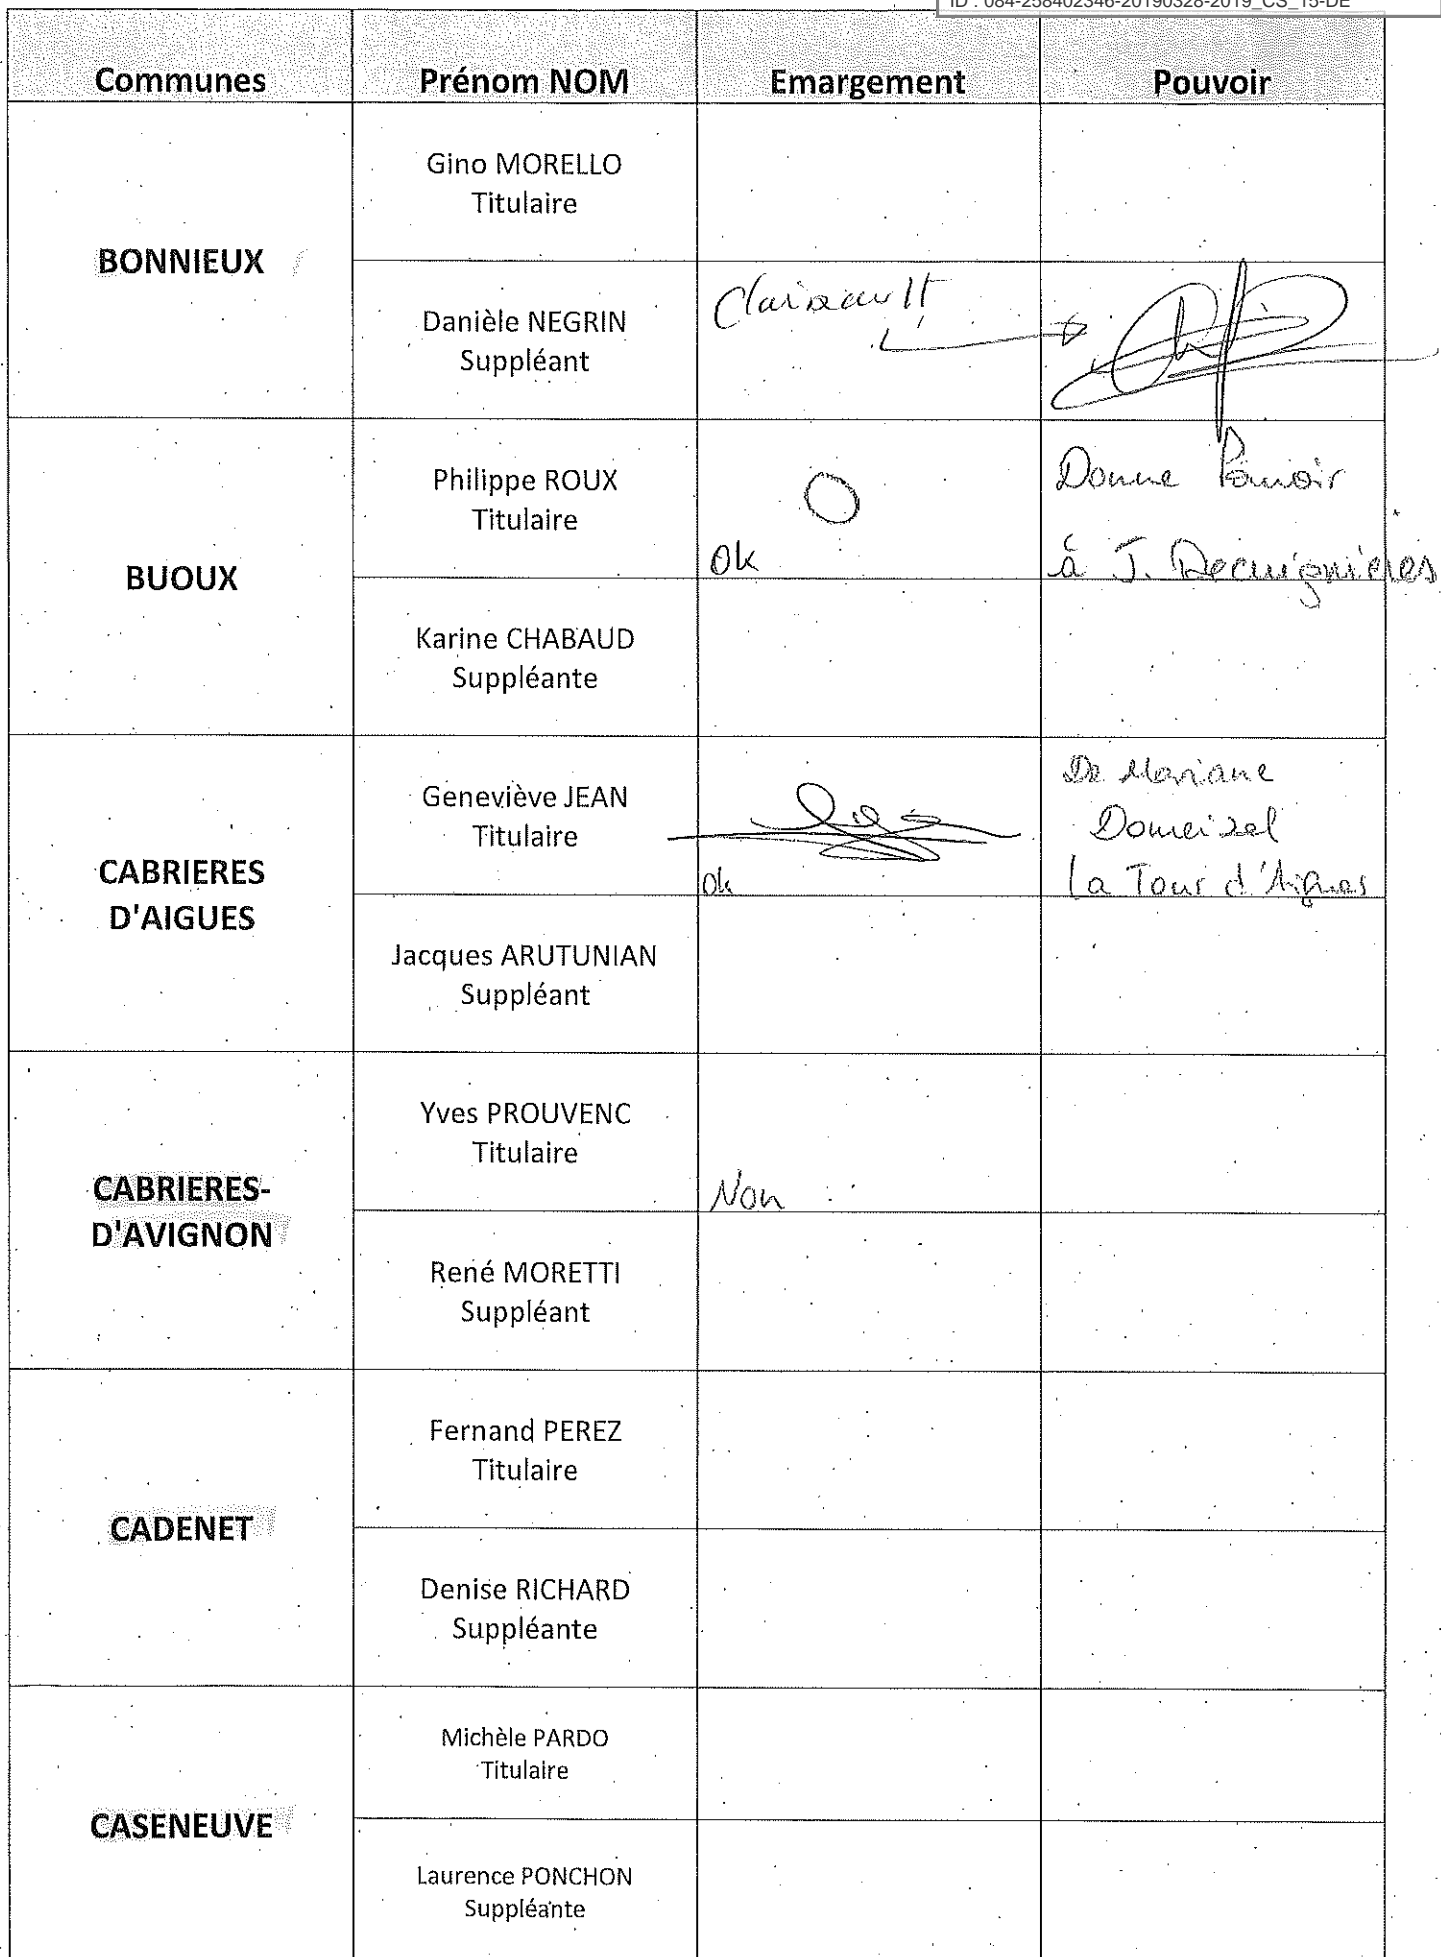 ID : 084-258402346-20190328-2019_CS_15-DE
Communes Prénom NOM Emargement Pouvoir
BONNIEUX
Gino MORELLO
Titulaire
Danièle NEGRIN
Suppléant
BUOUX
Philippe ROUX
Titulaire
Ok
Donne Pouvoir
à J. Decuignières
Karine CHABAUD
Suppléante
CABRIERES
D'AIGUES
Geneviève JEAN
Titulaire
Ok
De Mariane
Domeizel
la Tour d'Aigues
Jacques ARUTUNIAN
Suppléant
CABRIERES-
D'AVIGNON
Yves PROUVENC
Titulaire
Non
René MORETTI
Suppléant
CADENET
Fernand PEREZ
Titulaire
Denise RICHARD
Suppléante
CASENEUVE
Michèle PARDO
Titulaire
Laurence PONCHON
Suppléante